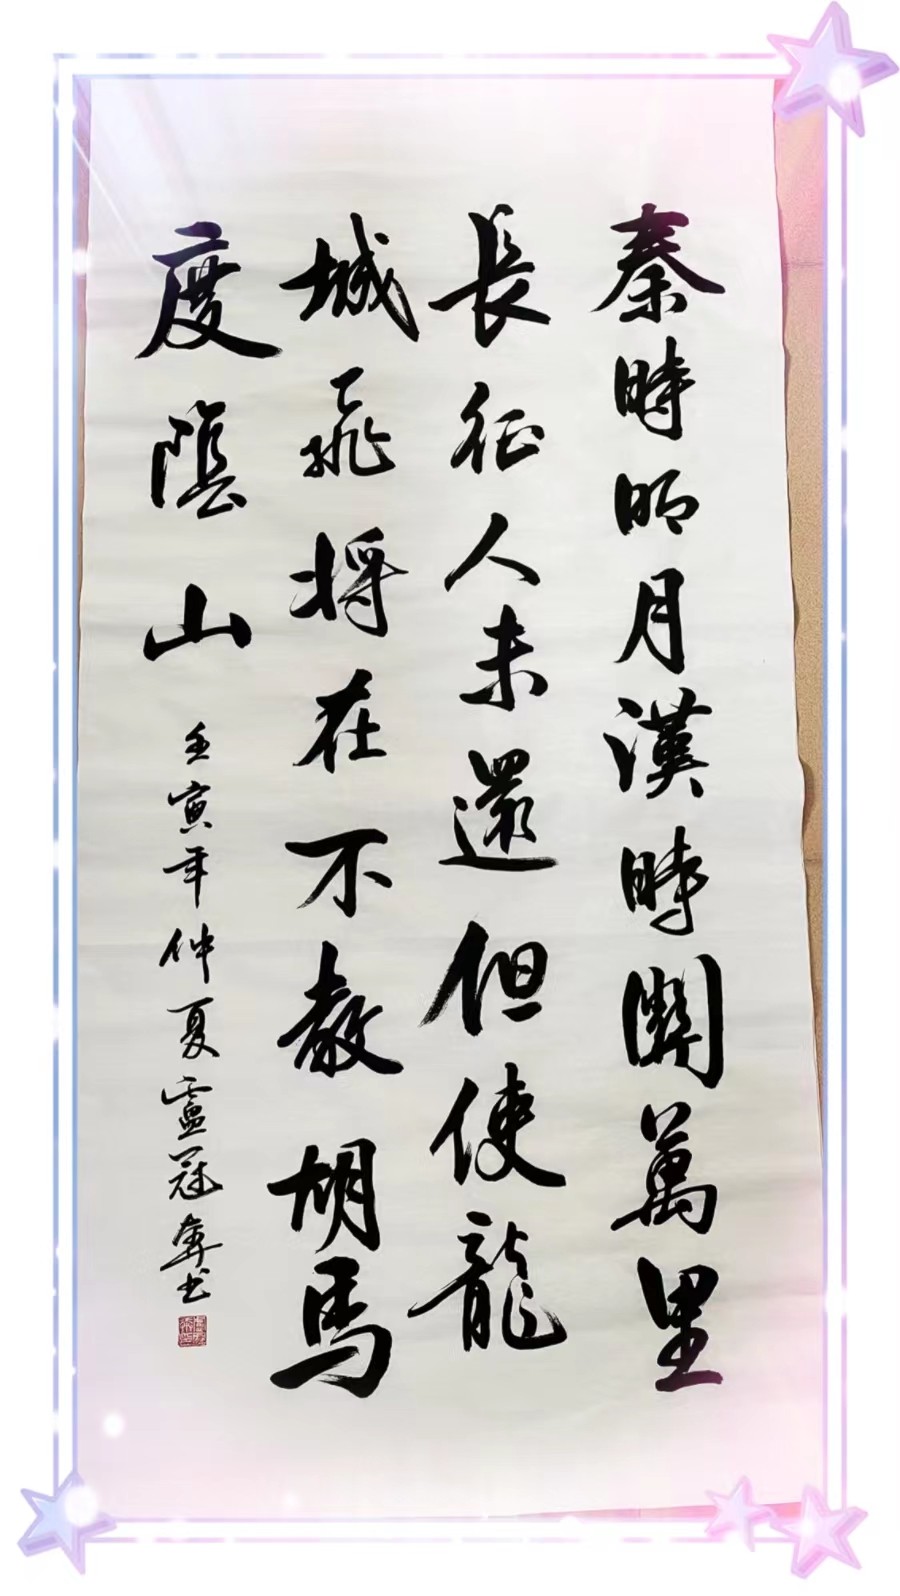 秦時明月漢時關萬里
長征人未還但使龍
城飛將在不教胡馬
度陰山
壬寅年仲夏盧冠舜书